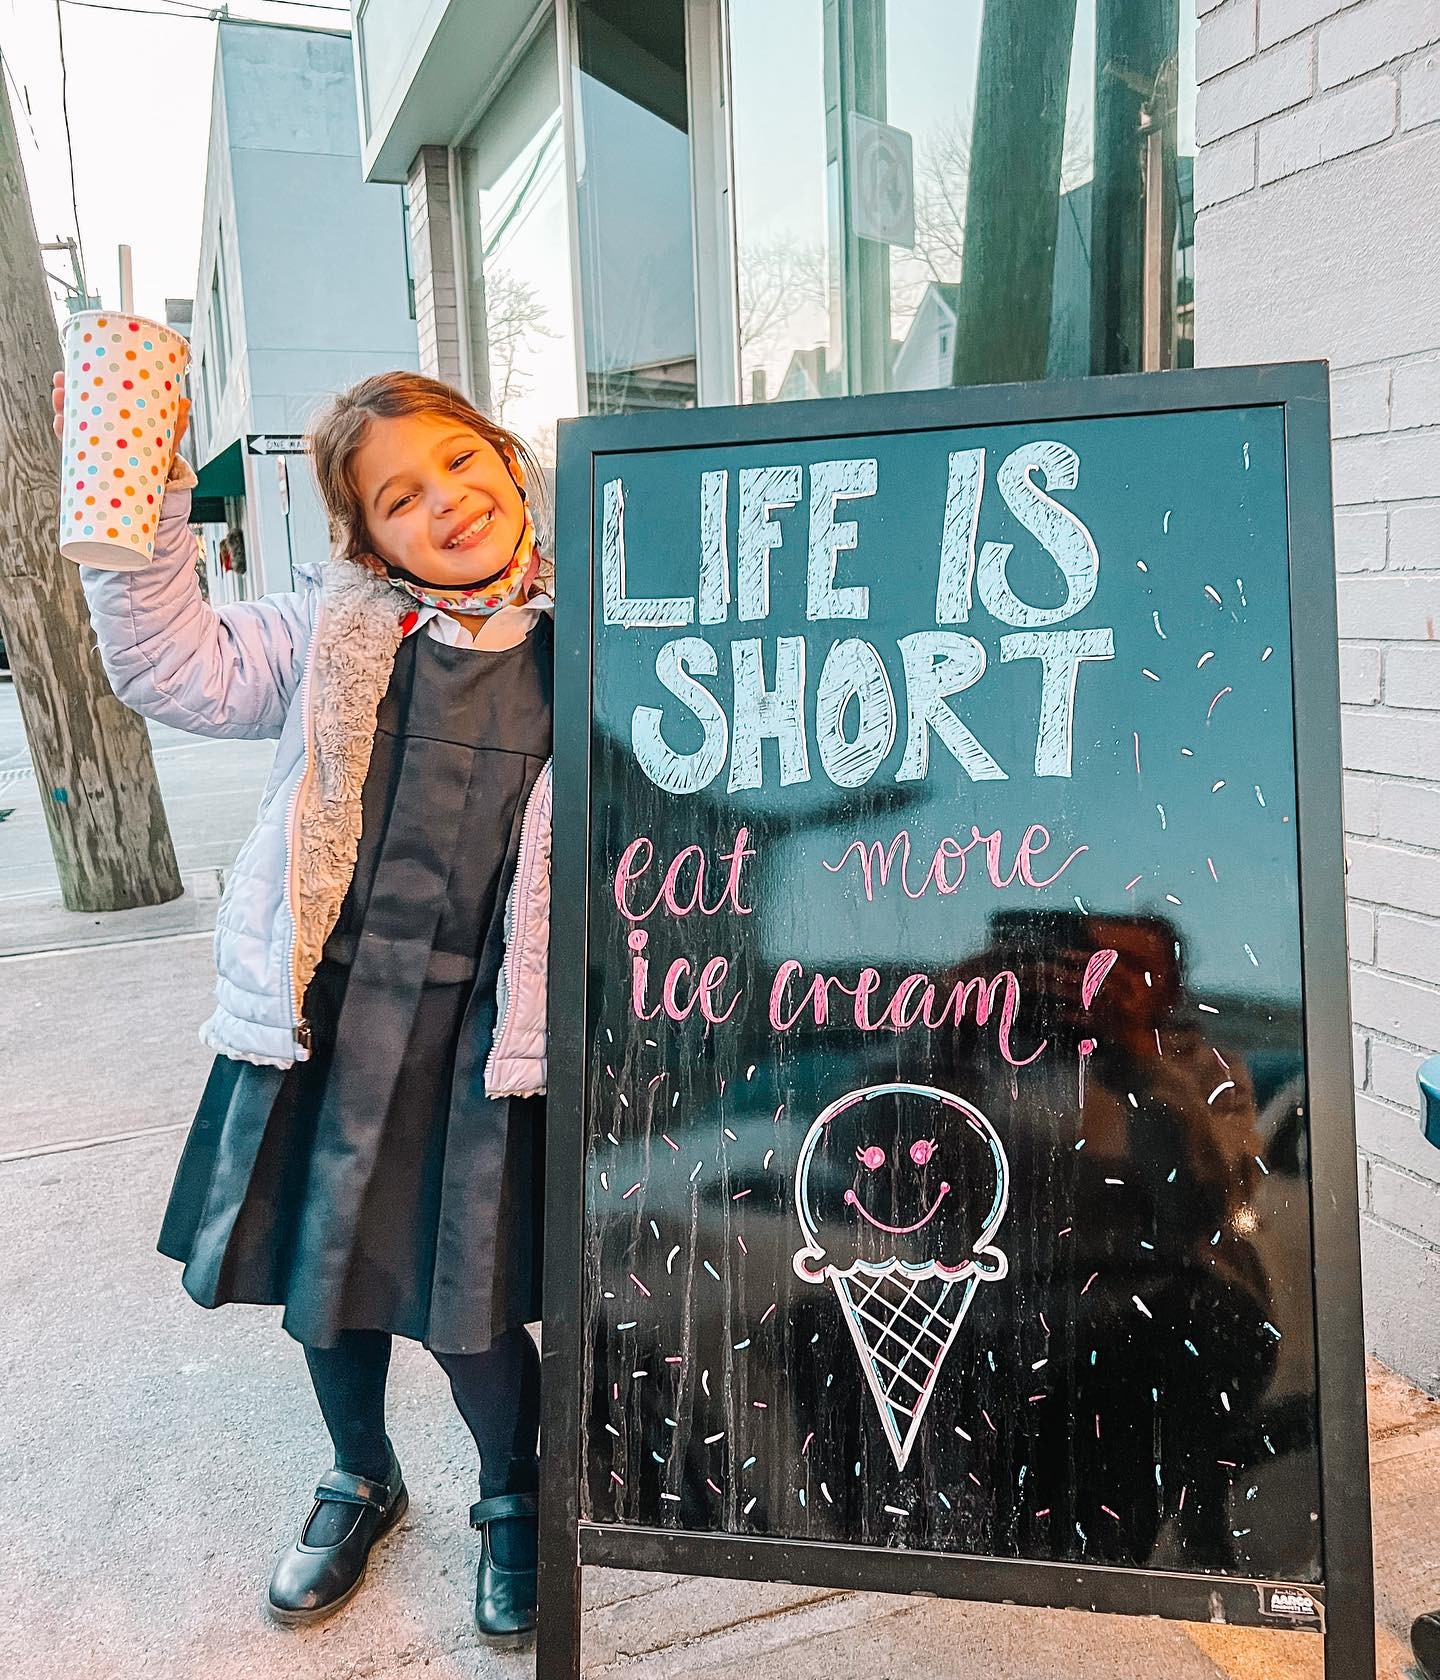 ONE WAY
LIFE IS
SHORT
eat more
ice cream!
AARCO